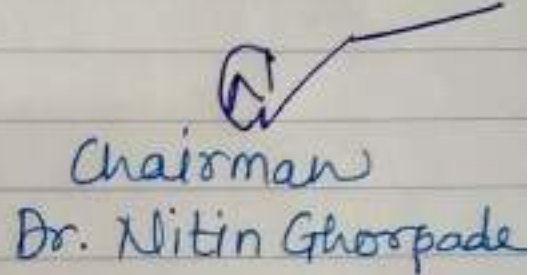 Chairman
Dr. Nitin Ghorpade